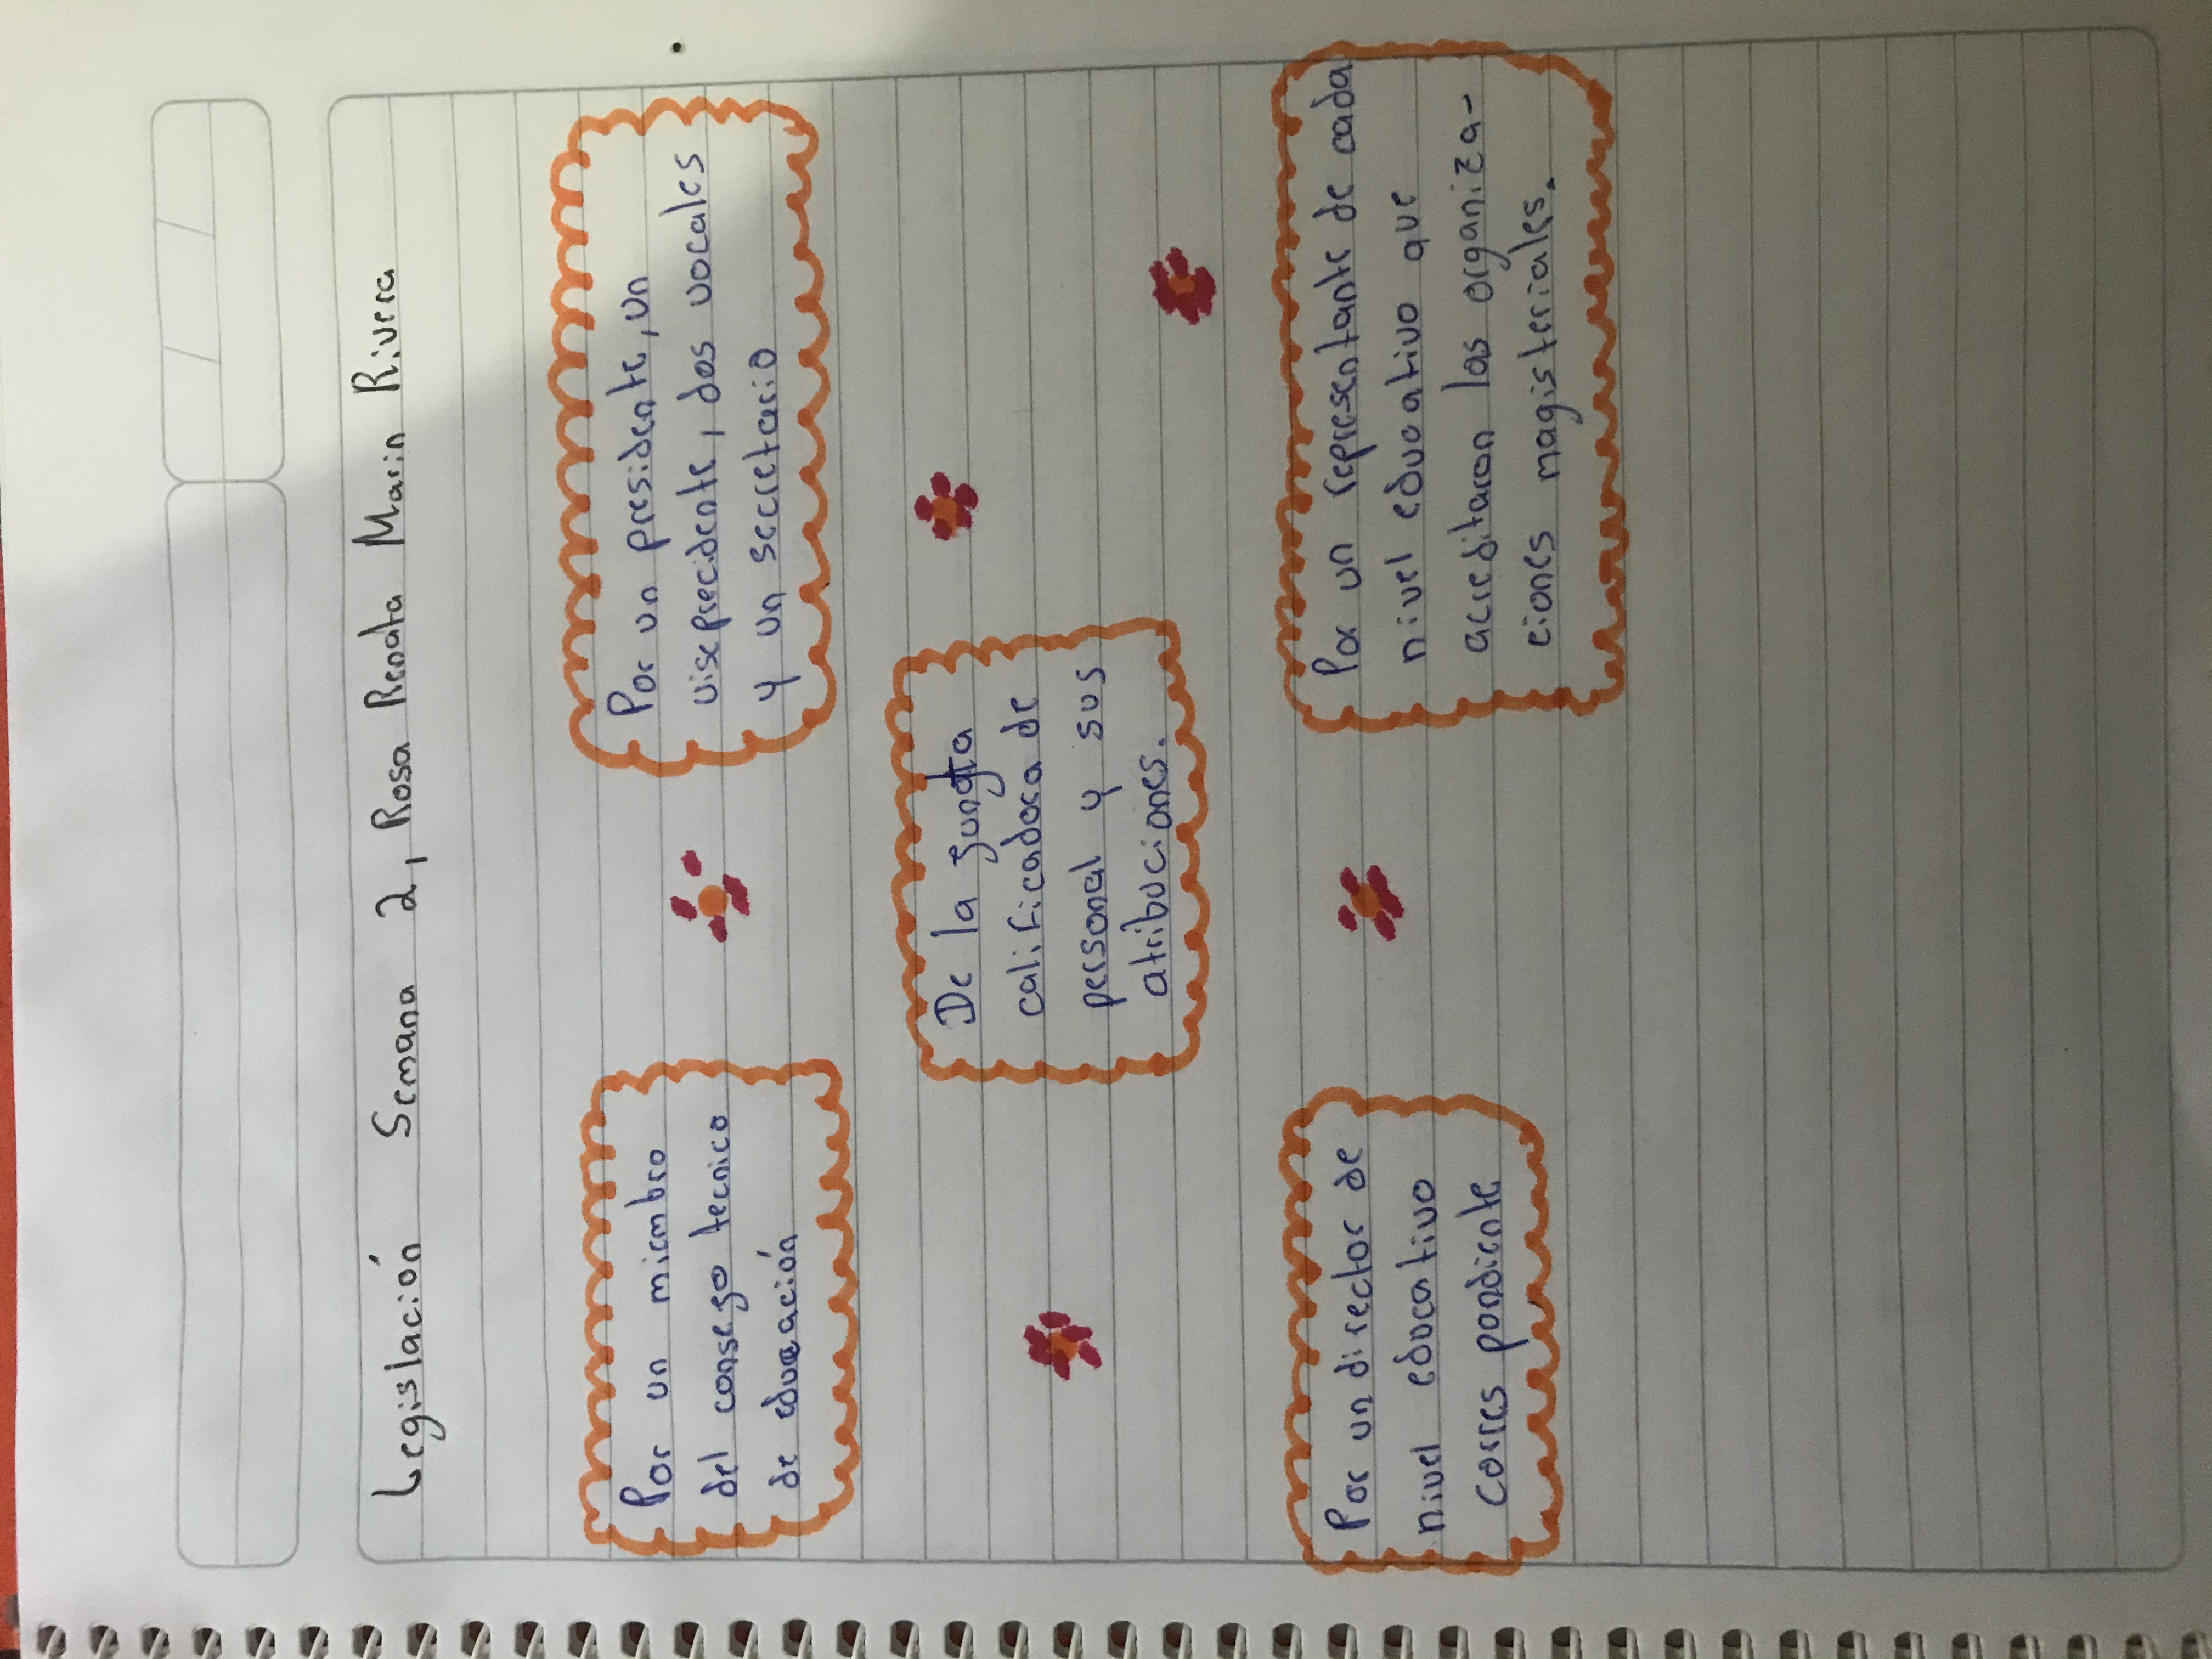 Legislación Semana 2, Rosa Renata Marin Rivera
Por un miembro
del consego tecnico
de educación
Por un presidente, un
viseprecidente, dos vocales
y un secretario
De la gunta
calificadora de
personal y sus
atribuciones.
Por un director de
nivel educativo
corres pondiente
Por un representante de cada
nivel educativo que
acreditaron las organiza-
ciones magisteriales.